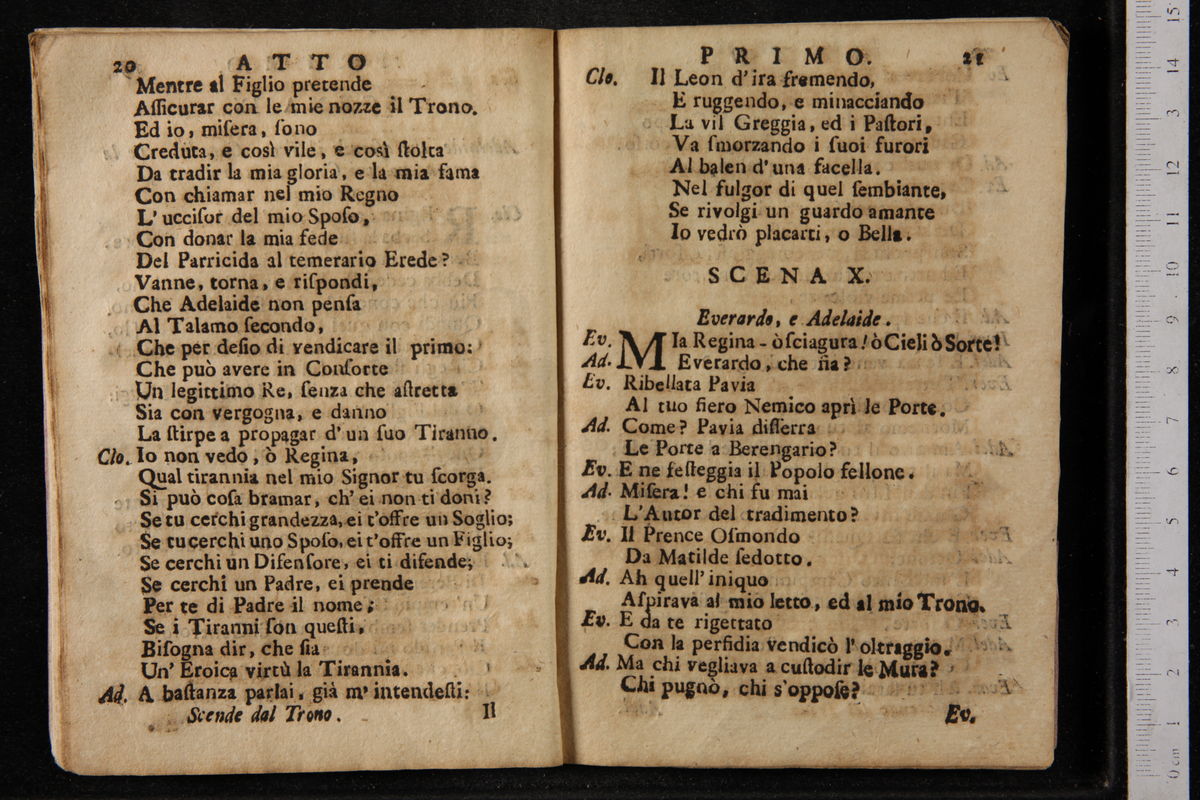 20 ATTO
Mentre al Figlio pretende
Aſſicurar con le mie nozze il Trono.
Ed io, miſera, ſono
Creduta, e così vile, e così ſtolta
Da tradir la mia gloria, e la mia fama
Con chiamar nel mio Regno
L' ucciſor del mio Spoſo,
Con donar la mia fede
Del Parricida al temerario Erede?
Vanne, torna, e riſpondi,
Che Adelaide non penſa
Al Talamo ſecondo,
Che per deſio di vendicare il primo:
Che può avere in Conſorte
Un legittimo Re, ſenza che aſtretta
Sia con vergogna, e danno
La ſtirpe a propagar d' un ſuo Tiranno.
Clo. Io non vedo, ò Regina,
Qual tirannia nel mio Signor tu ſcorga.
Si può coſa bramar, ch' ei non ti doni?
Se tu cerchi grandezza, ei t'offre un Soglio;
Se tu cerchi uno Spoſo, ei t'offre un Figlio;
Se cerchi un Difenſore, ei ti difende;
Se cerchi un Padre, ei prende
Per te di Padre il nome;
Se i Tiranni ſon queſti,
Biſogna dir, che ſia
Un' Eroica virtù la Tirannia.
Ad. A baſtanza parlai, già m' intendeſti:
Scende dal Trono.
Il
PRIMO. 21
Clo. Il Leon d' ira fremendo,
E ruggendo, e minacciando
La vil Greggia, ed i Paſtori,
Va ſmorzando i ſuoi furori
Al balen d' una facella.
Nel fulgor di quel ſembiante,
Se rivolgi un guardo amante
Io vedrò placarti, o Bella.
SCENA X.
Everardo, e Adelaide.
Ev. MIa Regina - ò ſciagura! ò Cieli ò Sorte!
Ad. Everardo, che fia?
Ev. Ribellata Pavia
Al tuo fiero Nemico aprì le Porte.
Ad. Come? Pavia diſſerra
Le Porte a Berengario?
Ev. E ne feſteggia il Popolo fellone.
Ad. Miſera! e chi fu mai
L'Autor del tradimento?
Ev. Il Prence Oſmondo
Da Matilde ſedotto.
Ad. Ah quell' iniquo
Aſpirava al mio letto, ed al mio Trono.
Ev. E da te rigettato
Con la perfidia vendicò l' oltraggio.
Ad. Ma chi vegliava a cuſtodir le Mura?
Chi pugnò, chi s'oppoſe?
Ev.
0 cm 1 2 3 4 5 6 7 8 9 10 11 12 13 14 15